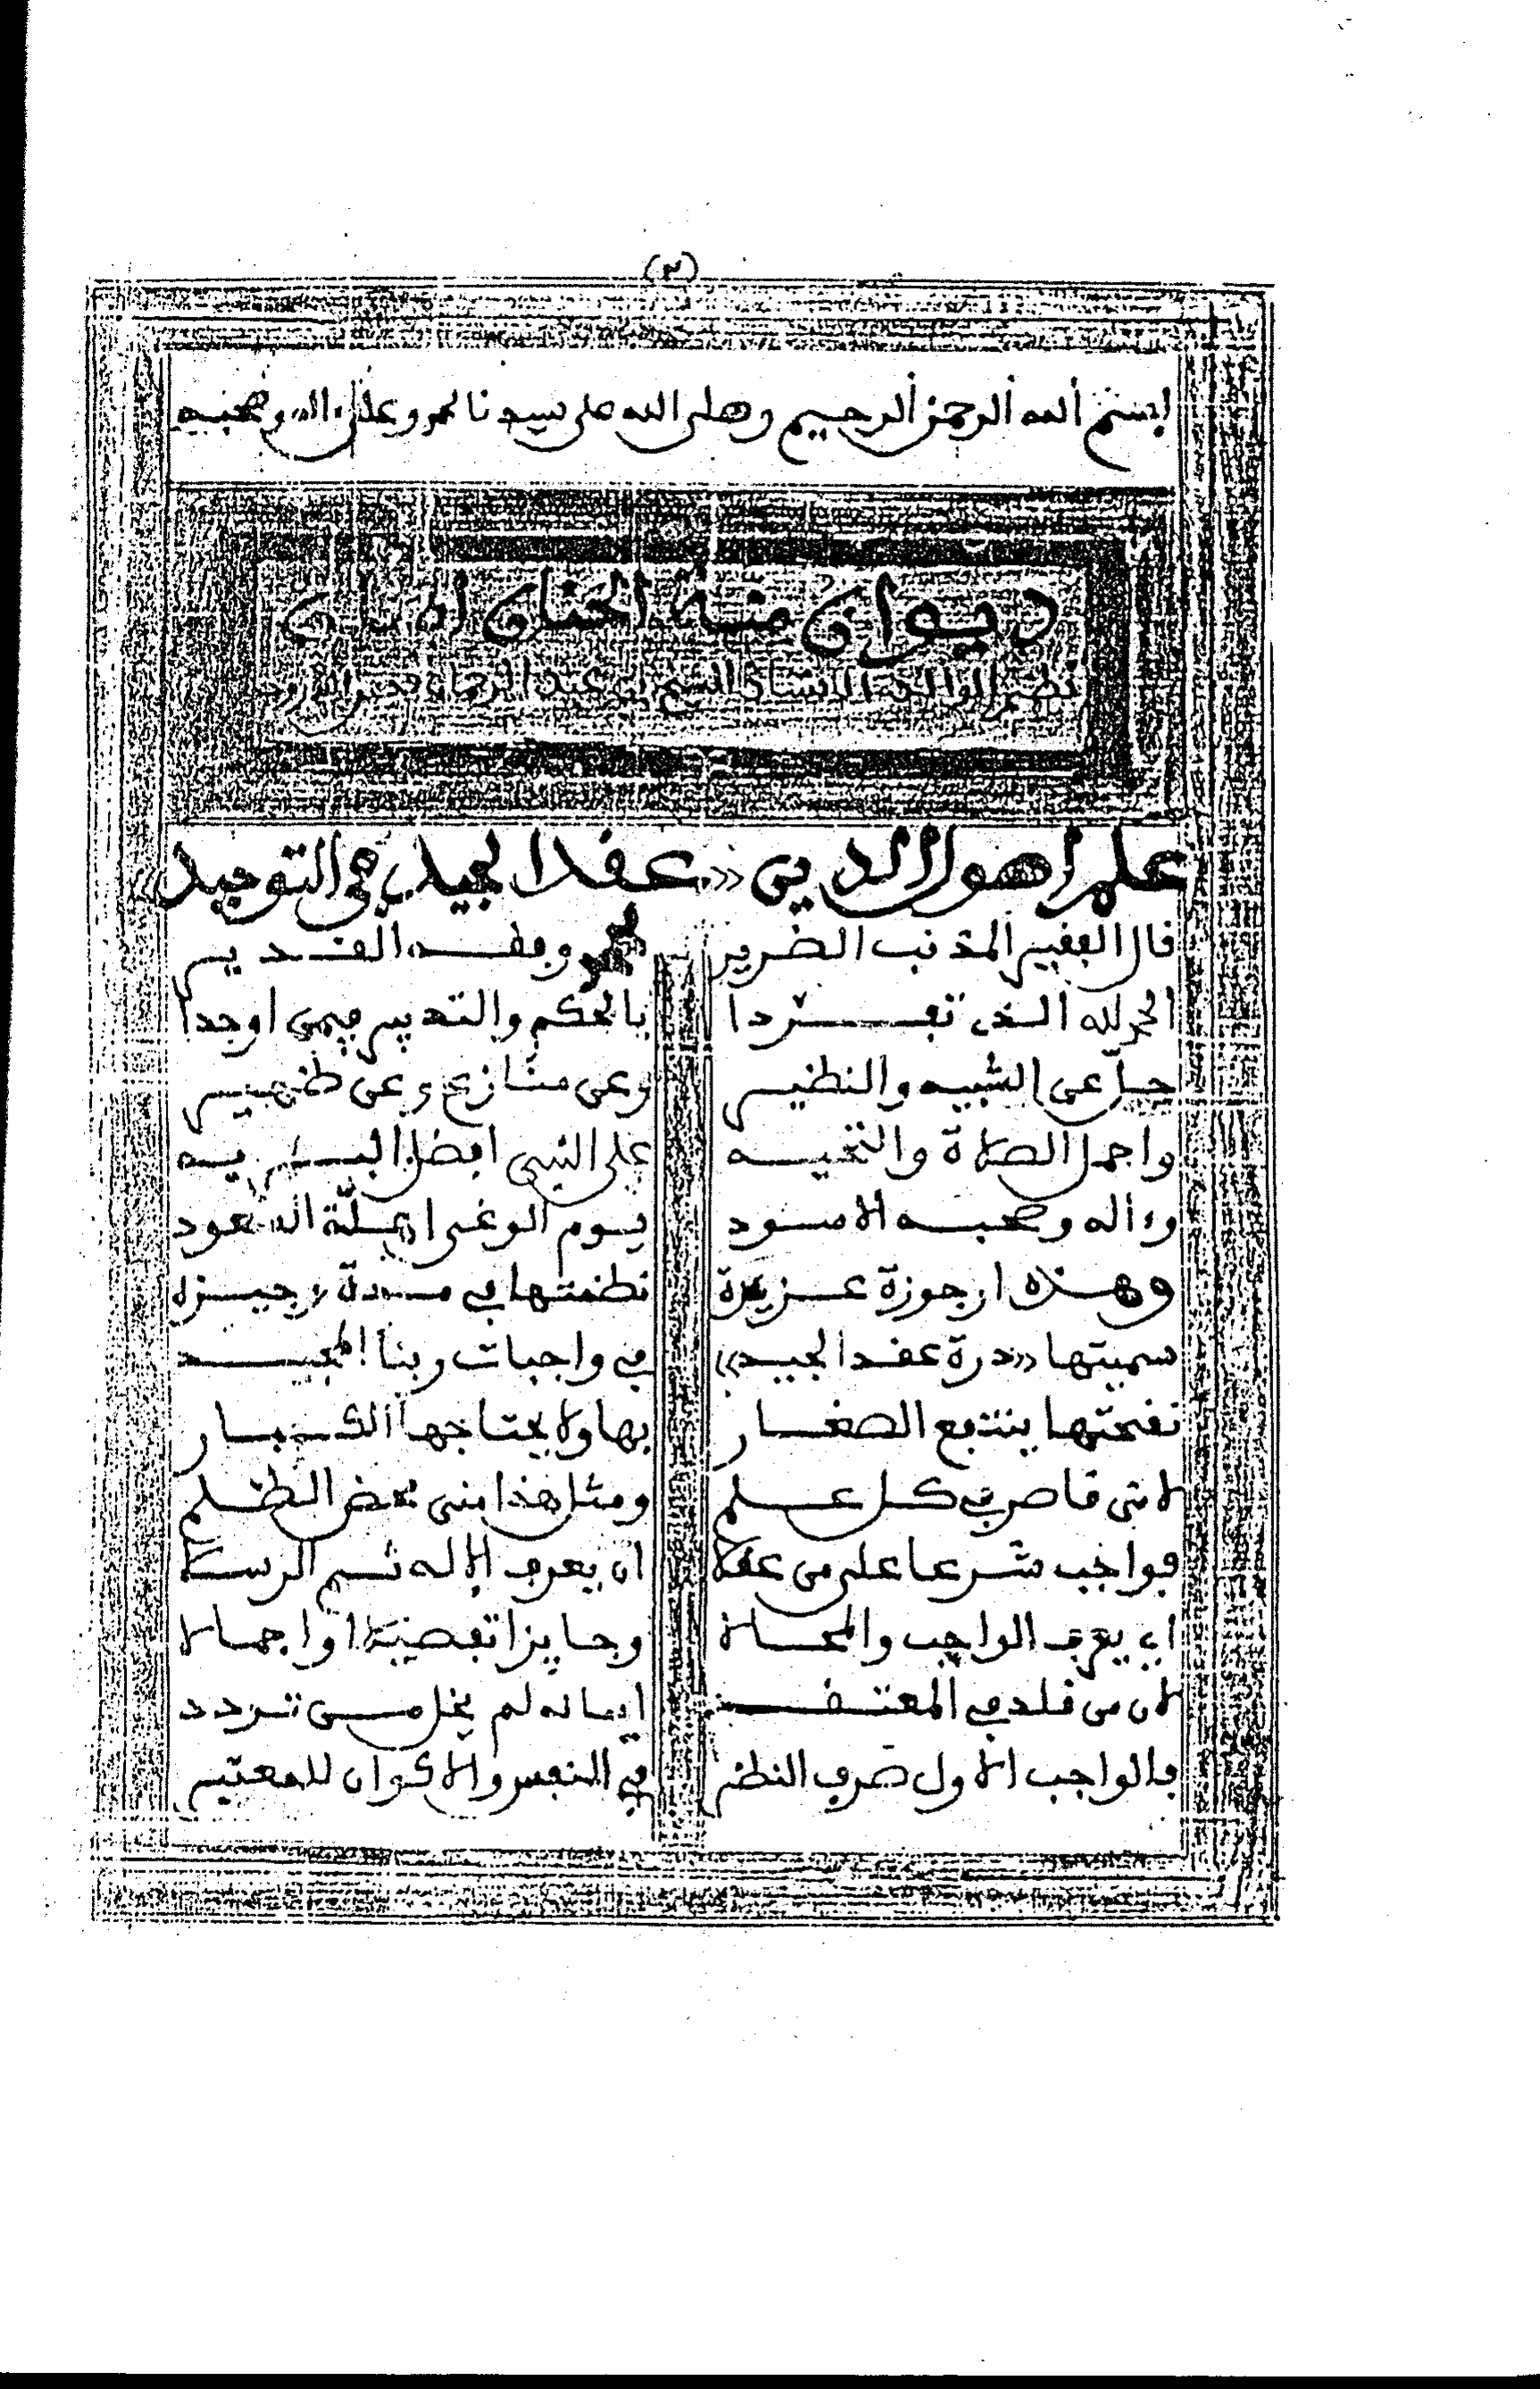 (٣)
بسم الله الرحمن الرحيم وصلى الله على سيدنا محمد وعلى ءاله وصحبه
ديوان منة الحنان المنان
نظم الوالد الشيخ عبد الرحمان
علم اصول الدين «عقد الجيد» في التوحيد
قال الفقير المذنب الضرير محمد وفقه القدير
الحمد لله الذي تفردا بالحكم والتدبير فيمن اوجدا
جل عن الشبيه والنظير وعن منازع وعن ظهير
واجمل الصلاة والتحيه على النبي افضل البريه
وءاله وصحبه الاسود يوم الوغى اهلة السعود
وهذه ارجوزة عزيزة نظمتها في مدة وجيزه
سميتها «درة عقد الجيد» في واجبات ربنا المجيد
نفحتها ينتفع الصغار بها ولا يحتاجها الكبار
لانني قاصر في كل علم ومثل هذا مني بعض الظلم
فواجب شرعا على من عقلا ان يعرف الاله ثم الرسلا
اي يعرف الواجب والمحالا وجايزا تفصيلا او اجمالا
لان من قلد في المعتقد ايمانه لم يخل من تردد
فالواجب الاول صرف النظر في النفس والاكوان للمعتبر